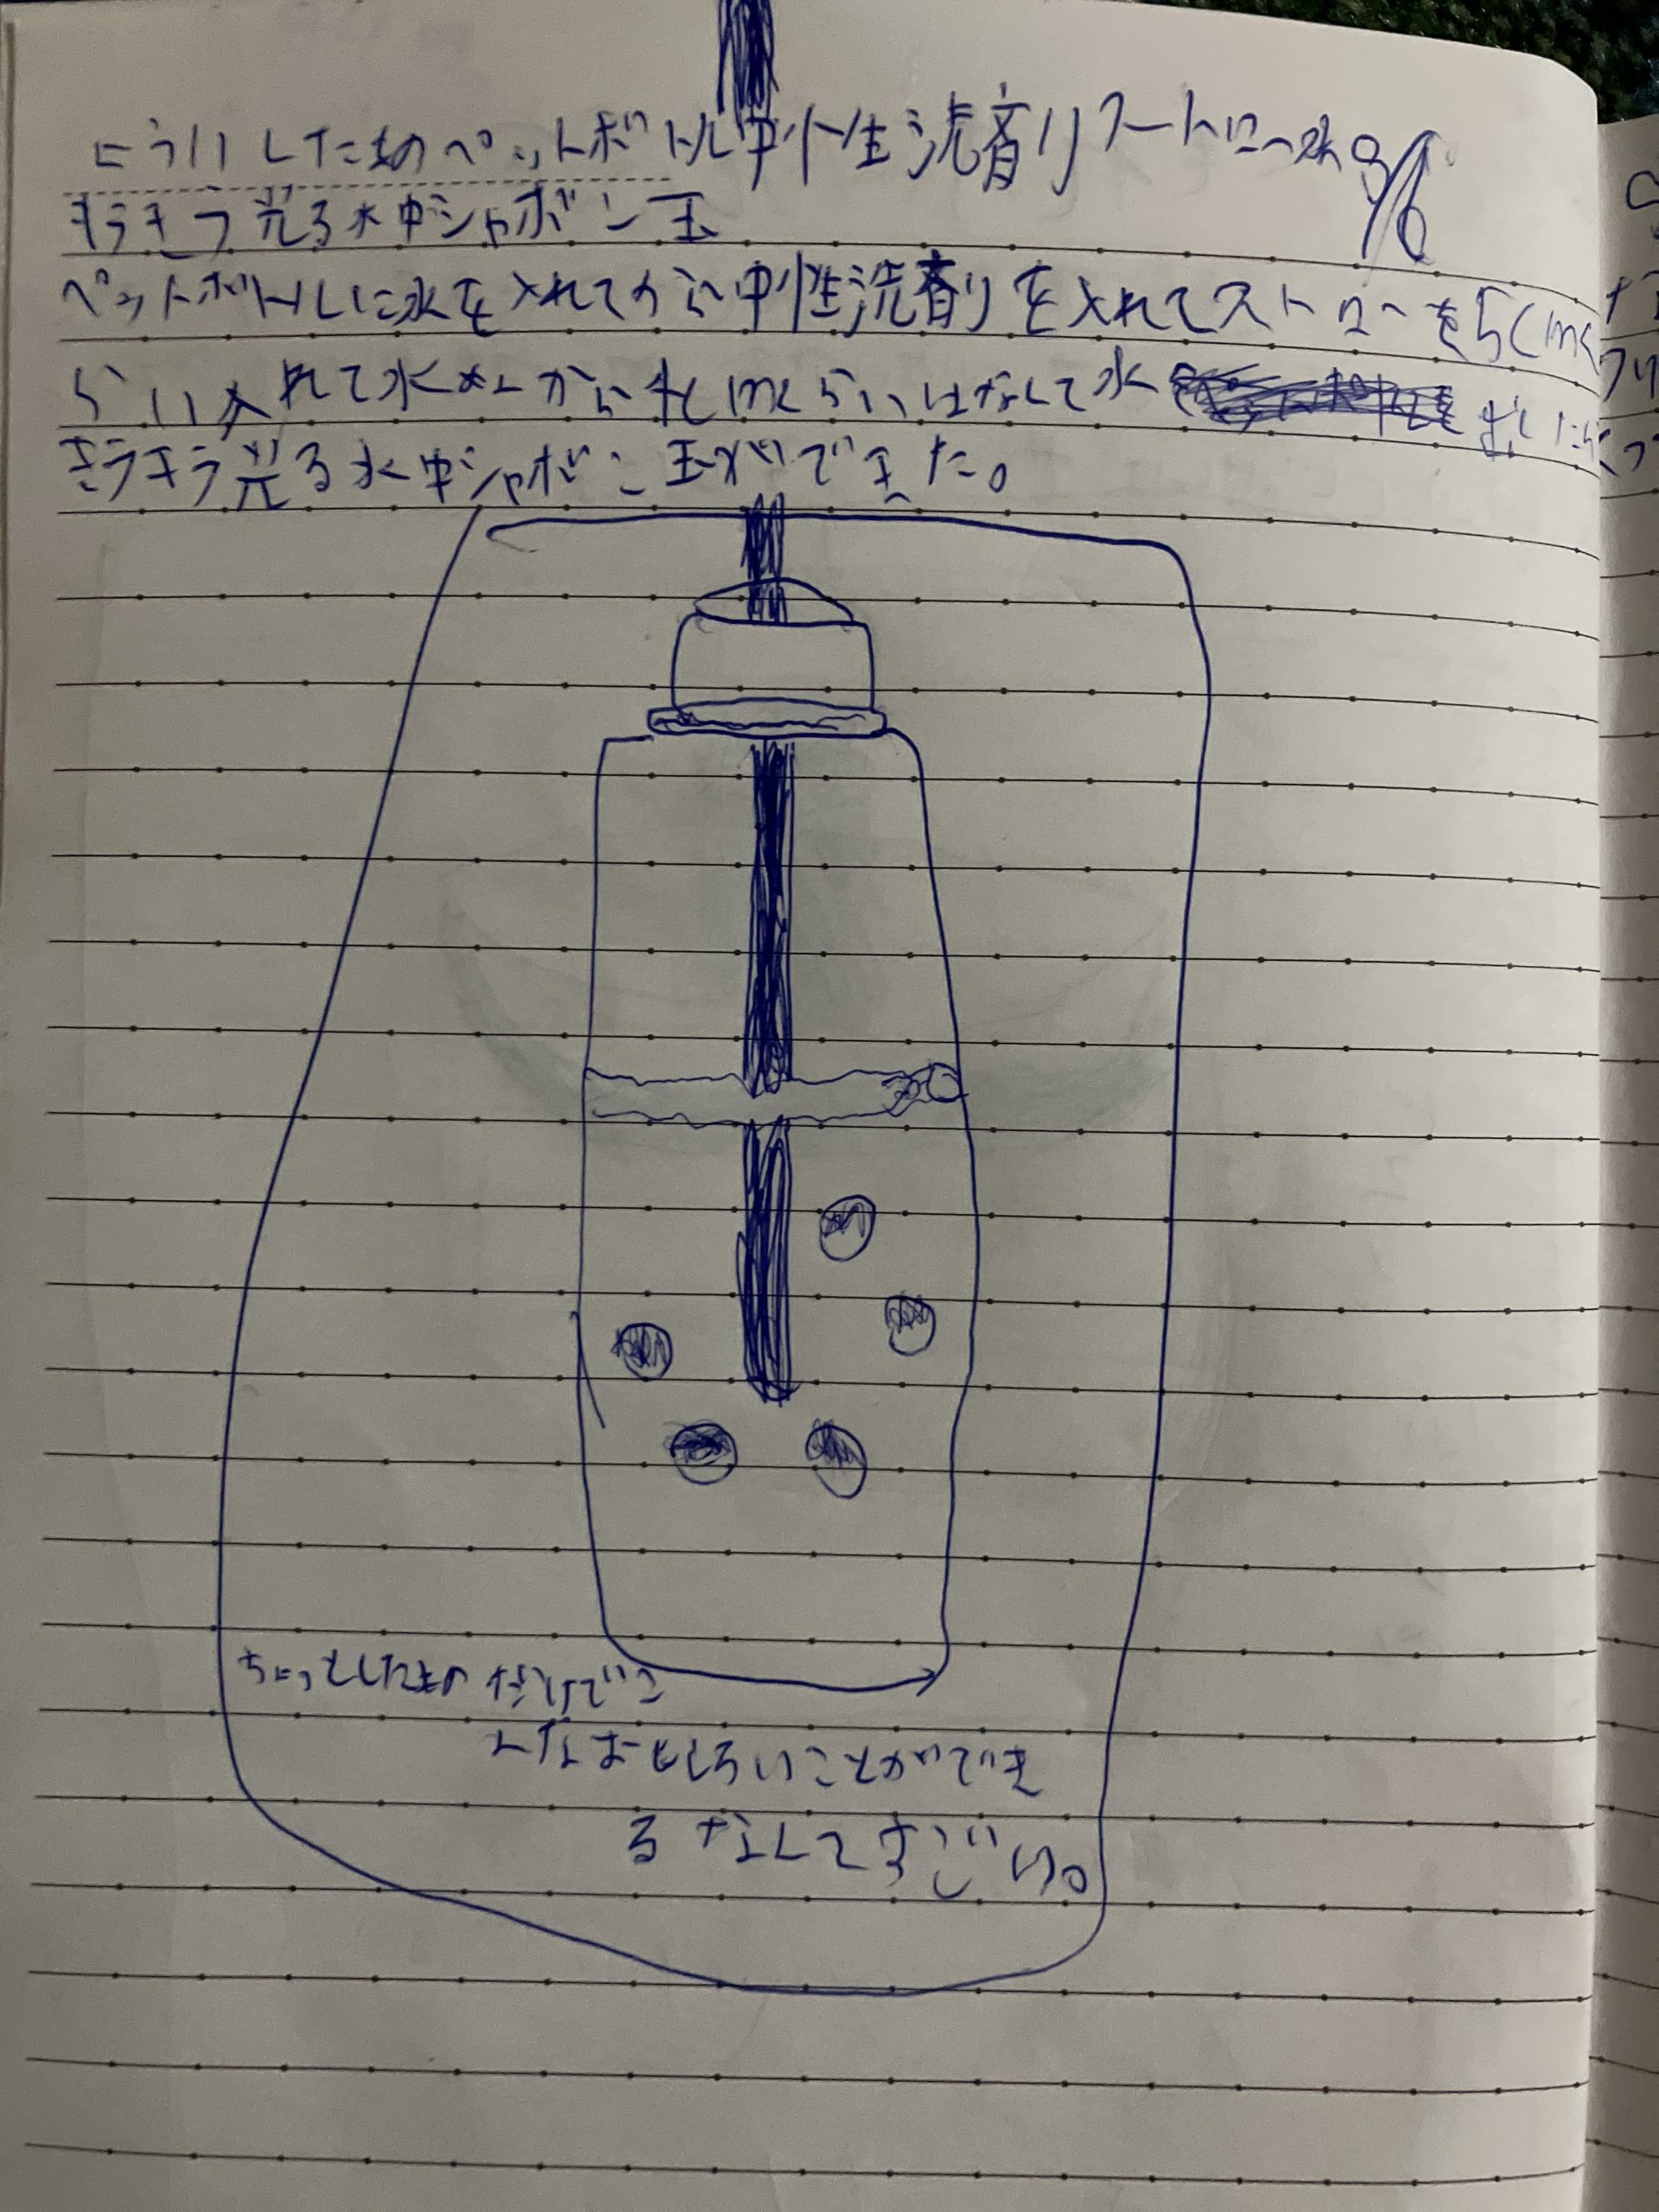 こういしたものペットボトル中性洗剤リストロー水 9/6
キラキラ光る水中シャボン玉
ペットボトルに水を入れてから中性洗剤りを入れてストローを5cmく
らい入れて水めんから cmくらいはなして水 おしたら
キラキラ光る水中シャボン玉ができた。
ちょっとしたものだけでこ
んなおもしろいことができ
るなんてすごい。